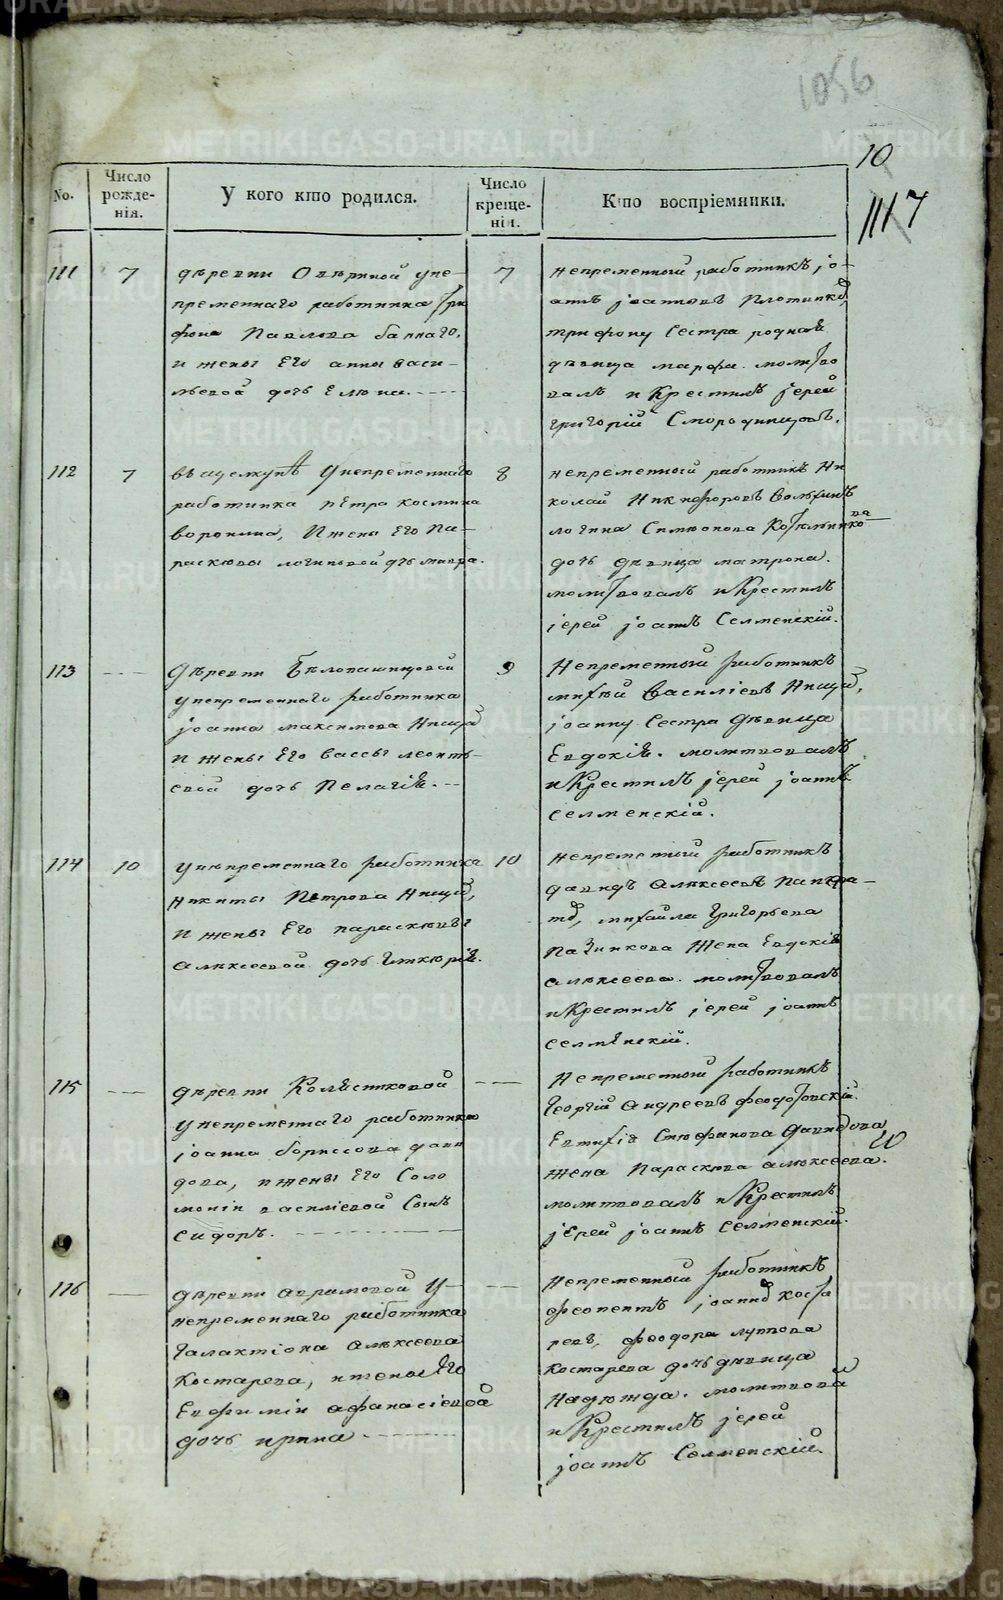 1056
10
1117
No.
Число рожденія.
У кого кто родился.
Число крещенія.
Кто воспріемники.
111
7
деревни Овѣриной у не-
пременнаго работника Три
фона Павлова
и жены Его анны васи-
льевой дочь Елена.
7
непременный работникъ іо-
аннъ іоанновъ Плотников,
трифону Сестра родная
дѣвица марфа. молитво
валъ и Крестилъ іерей
григорій Смородинцовъ.
112
7
въ щелкунѣ У непременнаго
работника пЕтра космина
воронина, И жены Его Па-
расковьи логиновой дчь мавра.
8
непременный работникъ Ни
колай Никифоровъ
логина Симеонова Котельнико
ва
дочь дѣвица матрона.
молитвовалъ и Крестилъ
іерей іоаннъ Селменскій.
113
Деревни Бѣлопашинцовой
у непременнаго работника
іоанна максимова
и жены Его вассы леонть-
евой дочь Пелагія.
9
Непременный работникъ
михѣй василіевъ
іоанну Сестра дѣвица
Евдокія. молитвовалъ
и Крестилъ іерей іоаннъ
селменскій.
114
10
у непременнаго работника
никиты Петрова
и жены Его парасковьи
алексеевой дочь Гликерія.
10
непременный работникъ
давидъ Алексеевъ
михайла Григорьева
жена Евдокія
алексеева. молитвовалъ
и Крестилъ іерей іоаннъ
селменскій.
115
деревни Колясниковой
у непременнаго работника
іоанна борисова давы
дова, и жены Его Соло
моніи василіевой Сынъ
сидоръ.
Непременный работникъ
Георгій андреевъ феодотовскій.
Евтихія Стефанова давыдова
жена Параскева алексеева.
молитвовалъ и Крестилъ
іЕрей іоаннъ Селменскій.
116
деревни абрамовой У
непременнаго работника
галактіона Алексеева
Костарева, и жены Его
Евфиміи афанасіевой
дочь ирина
Непременный работникъ
феопентъ іоаннов коста
ревъ, феодора
костарева дочь дѣвица
Надежда. молитвовал
и Крестилъ іерей
іоаннъ Селменскій.